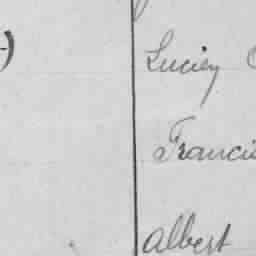 Lucien
Francis
Albert